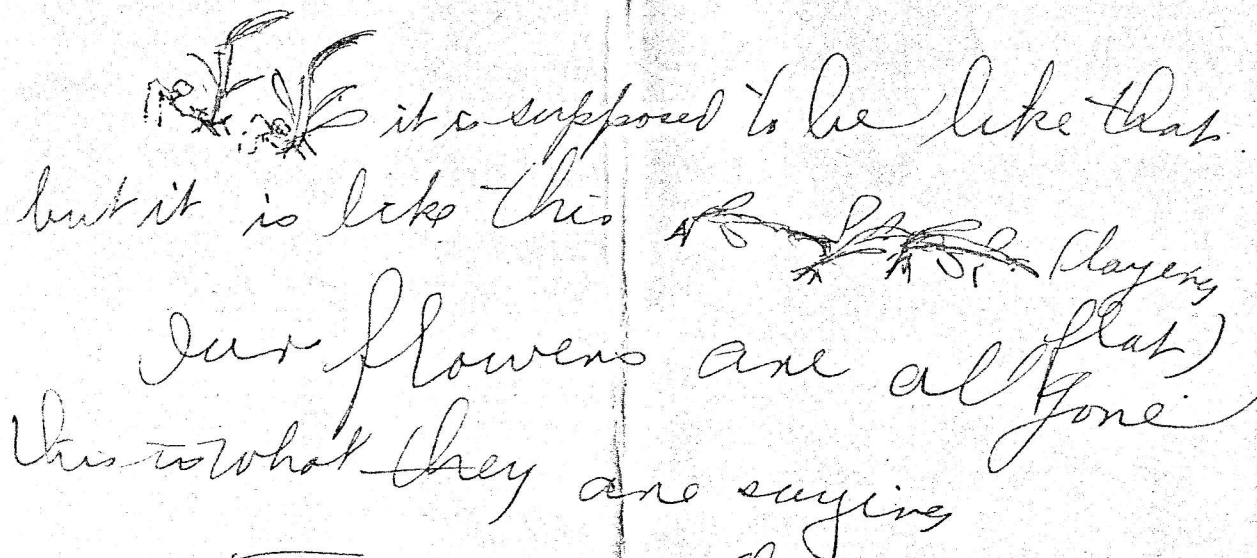 it is supposed to be like that.
but it is like this
(layeing
flat)
Our flowers are all gone
this is what they are saying